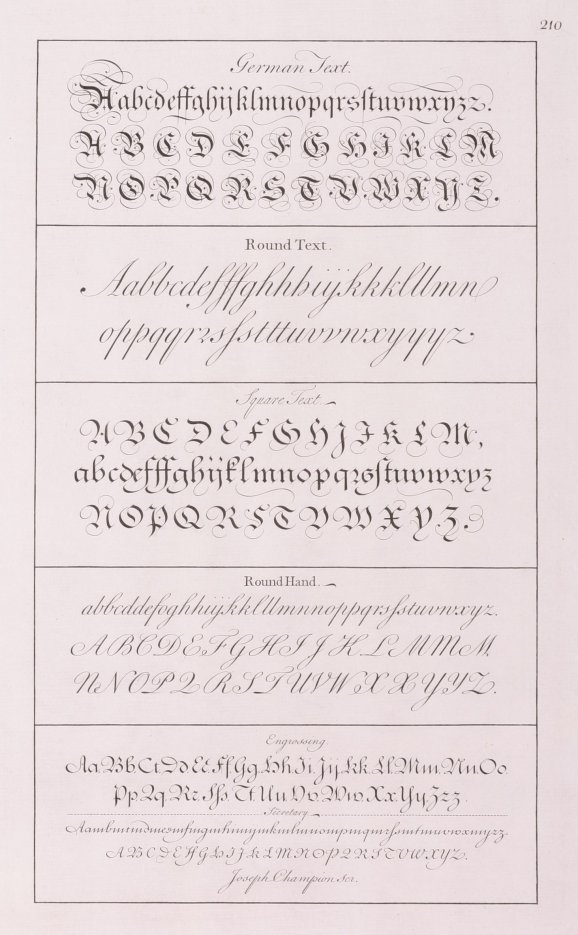 210
German Text.
Aabcdeffghijklmnopqrsſtuvwxyzz.
A B C D E F G H I K L M
N O P Q R S T V W X Y Z.
Round Text.
Aabbcdefffghhhijÿkkklllmn
oppqqrꝛsſstttuvvwxyyyz
Square Text.
A B C D E F G H J I K L M,
abcdefffghijklmnopqrꝛsſtuvwxyz
N O P Q R S T V W X Y Z.
Round Hand.
abbcddefoghhiijÿkkllllmnnoppqrsſstuvwxyz.
A B C D E F G H I J K L M M M.
N N O P Q R S T U V W X X Y Y Z.
Engrossing
Aa Bb Cc Dd Ee Ff Gg Hh Ii Jj Kk Ll Mm Nn Oo
Pp Qq Rr Sſs Tt Uu Vv Ww Xx Yy Zzz.
Secretary
A B C D E F G H I J K L M N O P Q R S T V W X Y Z.
Joseph Champion Scr.